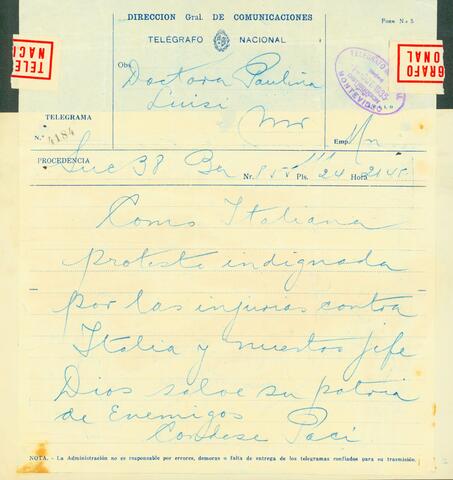 DIRECCION Gral. DE COMUNICACIONES
TELÉGRAFO NACIONAL
Form No 5
TELE
NACI
GRAFO
ONAL
TELEGRAFO
Obs.
Doctora Paulina
Luisi
TELEGRAMA
N.º 4184
Emp.
PROCEDENCIA Suc 38 Nr. Pls. 24 Hora 2145
Como Italiana
proteste indignada
por las injurias contra
Italia y nuestro jife
Dios salve su patria
de Enemigos
Condese Paci
NOTA. - La Administración no es responsable por errores, demoras o falta de entrega de los telegramas confiados para su trasmisión.